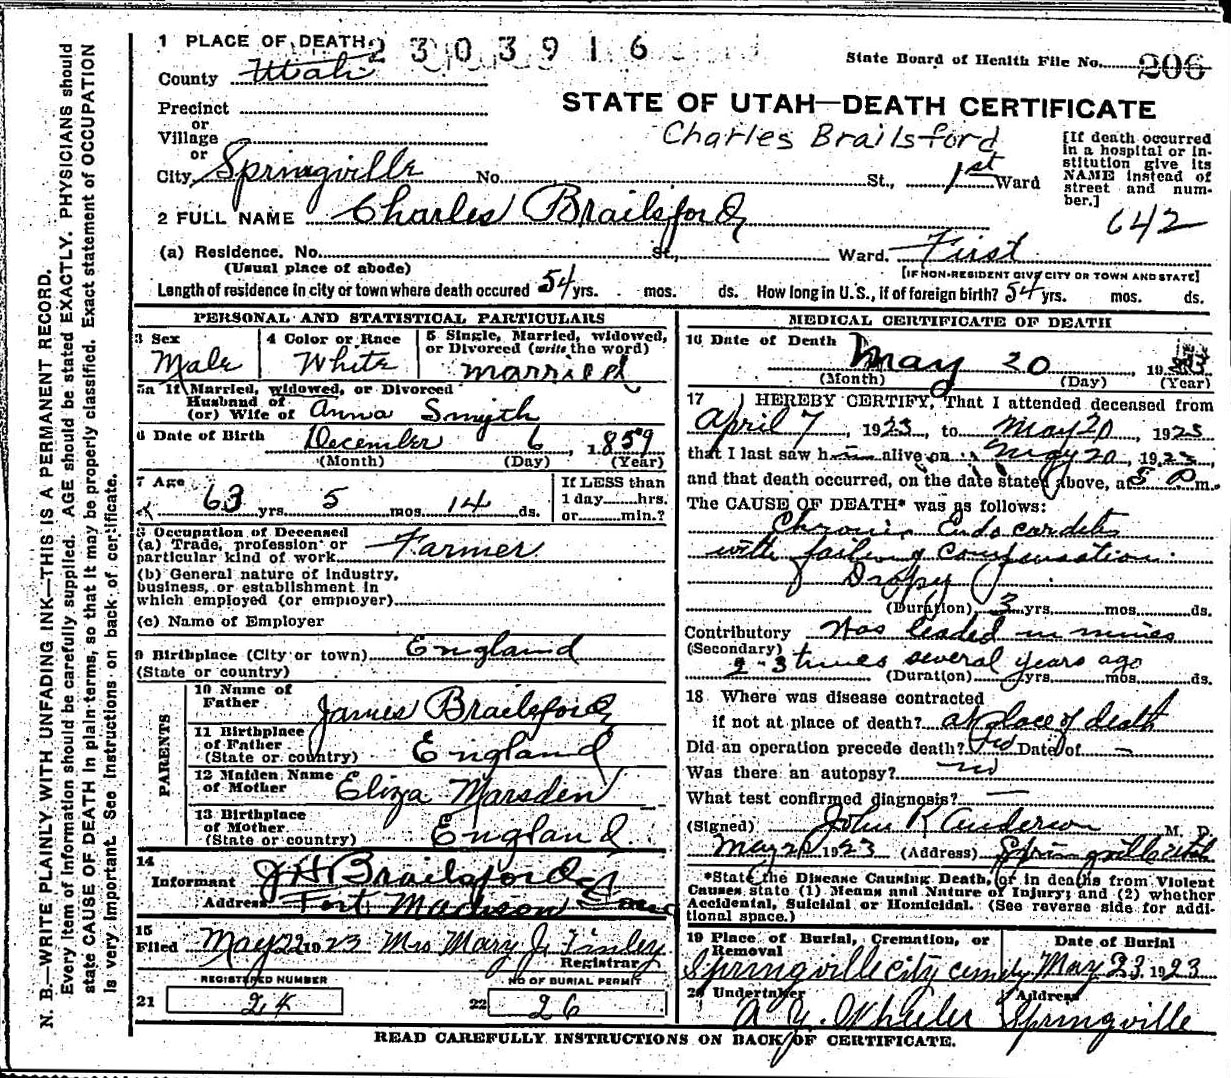 1 PLACE OF DEATH 2303916
State Board of Health File No. 206
County Utah
STATE OF UTAH—DEATH CERTIFICATE
Precinct
or
Village
or
Charles Brailsford
[If death occurred
in a hospital or in-
stitution give its
NAME instead of
street and num-
ber.]
City Springville No. St., 1st Ward
642
2 FULL NAME Charles Brailsford
(a) Residence. No. St., Ward. First
(Usual place of abode)
[IF NON-RESIDENT GIVE CITY OR TOWN AND STATE]
Length of residence in city or town where death occured 54 yrs. mos. ds. How long in U.S., if of foreign birth? 54 yrs. mos. ds.
PERSONAL AND STATISTICAL PARTICULARS
3 Sex
Male
4 Color or Race
White
5 Single, Married, widowed,
or Divorced (write the word)
married
5a If Married, widowed, or Divorced
Husband of
(or) Wife of Anna Smyth
6 Date of Birth December 6, 1859
(Month) (Day) (Year)
7 Age
63 yrs. 5 mos. 14 ds.
If LESS than
1 day hrs.
or min.?
8 Occupation of Deceased
(a) Trade, profession or
particular kind of work Farmer
(b) General nature of Industry,
business, or establishment in
which employed (or employer)
(c) Name of Employer
9 Birthplace (City or town) England
(State or country)
PARENTS
10 Name of
Father James Brailsford
11 Birthplace
of Father
(State or country) England
12 Maiden Name
of Mother Eliza Marsden
13 Birthplace
of Mother
(State or country) England
14
Informant J H Brailsford
Address Fort Madison
15
Filed May 22 1923 Mrs Mary J. Tinley
Registrar
REGISTERED NUMBER
21 24
NO OF BURIAL PERMIT
22 26
MEDICAL CERTIFICATE OF DEATH
16 Date of Death May 20 19
(Month) (Day) (Year)
17 I HEREBY CERTIFY, That I attended deceased from
April 7, 1923, to May 20, 1923
that I last saw him alive on May 20, 1923,
and that death occurred, on the date stated above, at 5 P m.
The CAUSE OF DEATH* was as follows:
Chronic Endocardets
with failing compensation
Dropsy
(Duration) 3 yrs. mos. ds.
Contributory Was leaded in mines
(Secondary)
2-3 times several years ago
(Duration) yrs. mos. ds.
18 Where was disease contracted
if not at place of death? at place of death
Did an operation precede death? No Date of —
Was there an autopsy? no
What test confirmed diagnosis? —
(Signed) John R Anderson M. D.
May 20 1923 (Address) Springville Utah
*State the Disease Causing Death, or in deaths from Violent
Causes state (1) Means and Nature of Injury; and (2) whether
Accidental, Suicidal or Homicidal. (See reverse side for addi-
tional space.)
19 Place of Burial, Cremation, or
Removal
Springville City
Date of Burial
May 23 1923
20 Undertaker
A. Y. Wheeler
Address
Springville
READ CAREFULLY INSTRUCTIONS ON BACK OF CERTIFICATE.
N. B.—WRITE PLAINLY WITH UNFADING INK—THIS IS A PERMANENT RECORD.
Every item of information should be carefully supplied. AGE should be stated EXACTLY. PHYSICIANS should
state CAUSE OF DEATH in plain terms, so that it may be properly classified. Exact statement of OCCUPATION
is very important. See instructions on back of certificate.